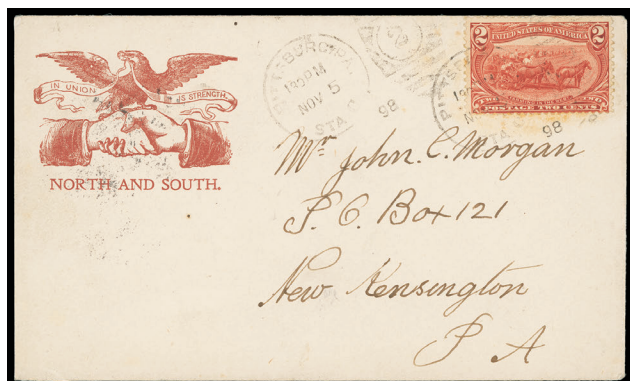 IN UNION IS STRENGTH.
NORTH AND SOUTH.
PITTSBURG, PA.
130 PM
NOV 5
98
STA.
2 UNITED STATES OF AMERICA 2
FARMING IN THE WEST
POSTAGE TWO CENTS
PITTS
NOV
98
STA
Mr John. C. Morgan
P. O. Box 121
New Kensington
P A